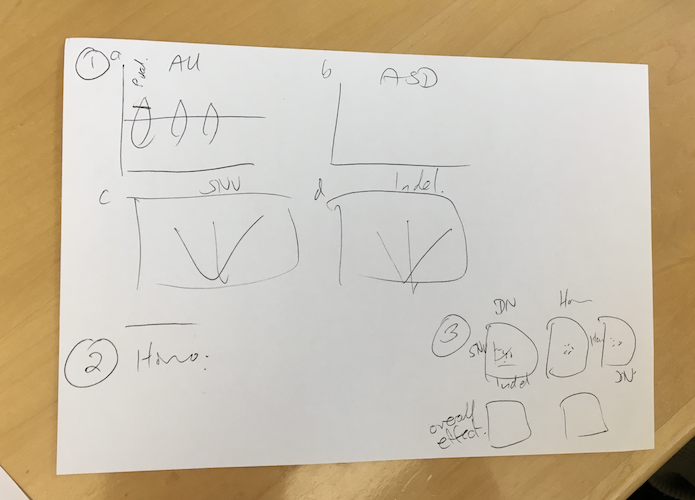 1
a
All
b
ASD
c
SNV
d
Indel.
2
Homo:
3
DN
SNV
Indel
DN
overall
effect.